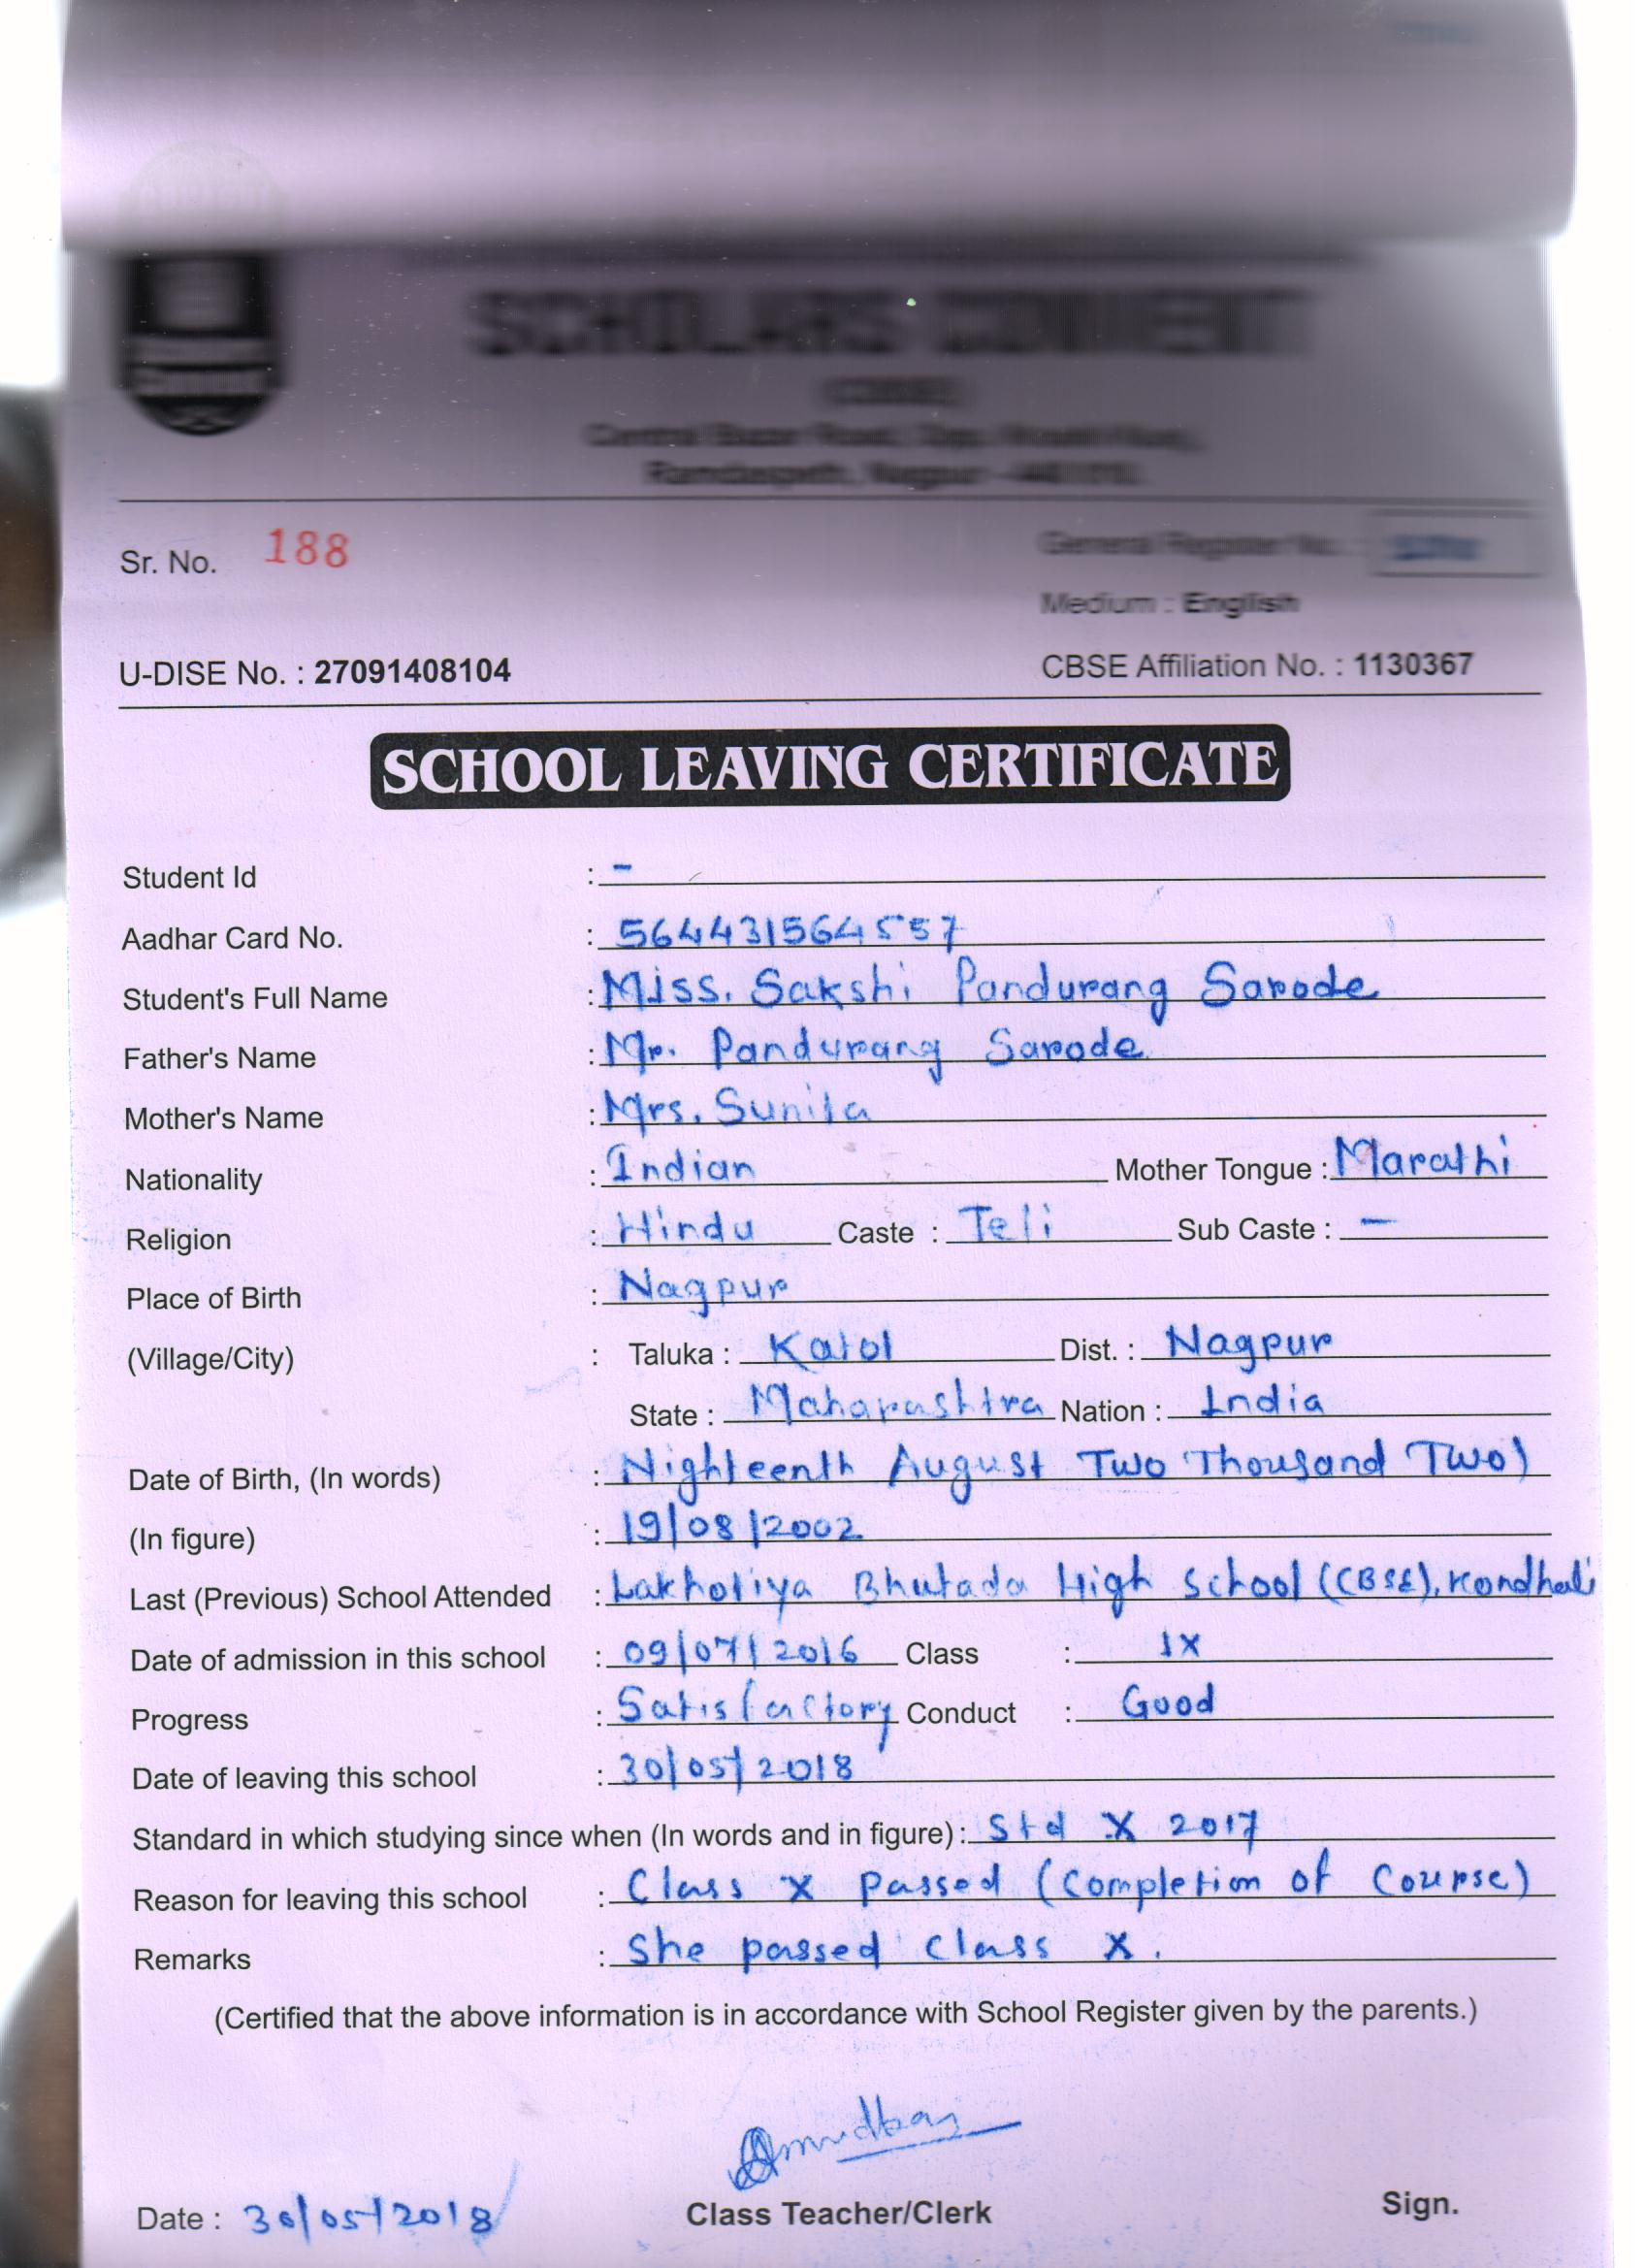 SCHOLARS CONVENT
(CBSE)
Nagpur
Sr. No. 188
General Register No. :
Medium : English
U-DISE No. : 27091408104 CBSE Affiliation No. : 1130367
SCHOOL LEAVING CERTIFICATE
Student Id : -
Aadhar Card No. : 564431564557
Student's Full Name : Miss. Sakshi Pandurang Sarode
Father's Name : Mr. Pandurang Sarode
Mother's Name : Mrs. Sunita
Nationality : Indian Mother Tongue : Marathi
Religion : Hindu Caste : Teli Sub Caste : —
Place of Birth : Nagpur
(Village/City) : Taluka : Katol Dist. : Nagpur
State : Maharashtra Nation : India
Date of Birth, (In words) : Nighteenth August Two Thousand Two)
(In figure) : 19/08/2002
Last (Previous) School Attended : Lakhotiya Bhutada High School (CBSE), Kondhali
Date of admission in this school : 09/07/2016 Class : IX
Progress : Satisfactory Conduct : Good
Date of leaving this school : 30/05/2018
Standard in which studying since when (In words and in figure) : Std X 2017
Reason for leaving this school : Class X Passed (Completion of Course)
Remarks : She passed class X.
(Certified that the above information is in accordance with School Register given by the parents.)
Date : 30/05/2018 Class Teacher/Clerk Sign.